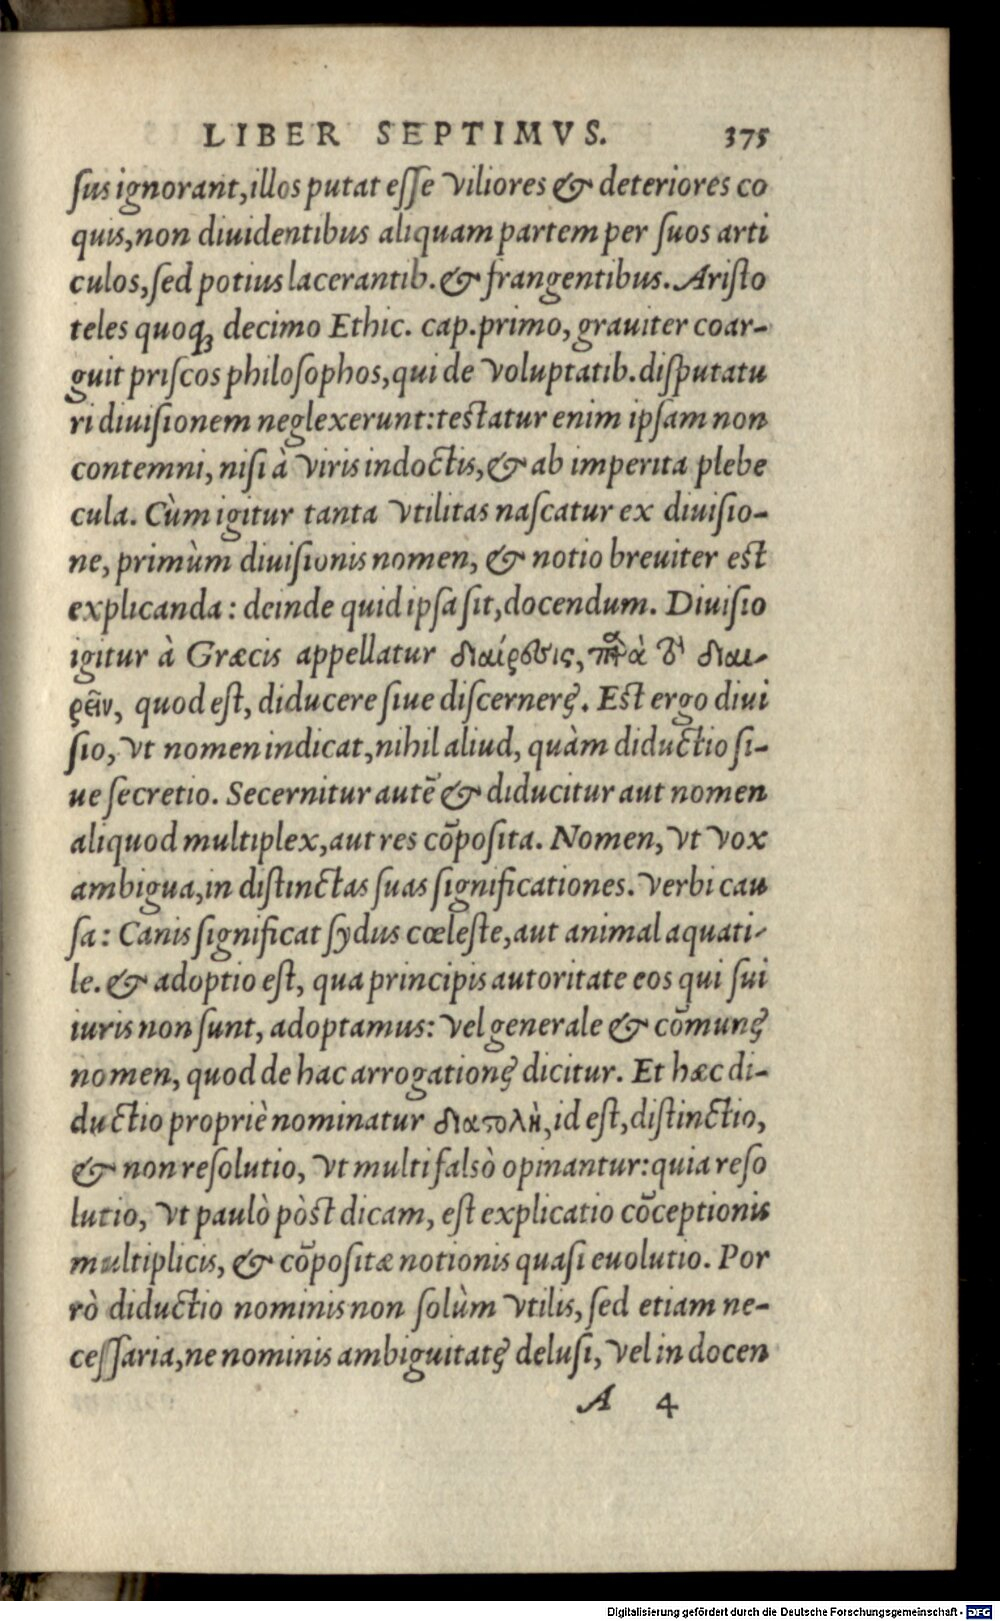 LIBER SEPTIMVS. 375
ſus ignorant, illos putat eſſe viliores & deteriores co
quis, non diuidentibus aliquam partem per ſuos arti
culos, ſed potius lacerantib. & frangentibus. Ariſto
teles quoq; decimo Ethic. cap. primo, grauiter coar-
guit priſcos philoſophos, qui de voluptatib. diſputatu
ri diuiſionem neglexerunt: teſtatur enim ipſam non
contemni, niſi à viris indoctis, & ab imperita plebe
cula. Cùm igitur tanta vtilitas naſcatur ex diuiſio-
ne, primùm diuiſionis nomen, & notio breuiter eſt
explicanda: deinde quid ipſa ſit, docendum. Diuiſio
igitur à Græcis appellatur διαίρεσις, παρὰ τὸ διαι-
ρεῖν, quod eſt, diducere ſiue diſcernere. Eſt ergo divi
ſio, vt nomen indicat, nihil aliud, quàm diductio ſi-
ue ſecretio. Secernitur autē & diducitur aut nomen
aliquod multiplex, aut res cōpoſita. Nomen, vt vox
ambigua, in diſtinctas ſuas ſignificationes. Verbi cau
ſa: Canis ſignificat ſydus cœleſte, aut animal aquati-
le. & adoptio eſt, qua principis autoritate eos qui ſui
iuris non ſunt, adoptamus: vel generale & cōmune
nomen, quod de hac arrogatione dicitur. Et hæc di-
ductio propriè nominatur διαστολὴ, id eſt, diſtinctio,
& non reſolutio, vt multi falsò opinantur: quia reſo
lutio, vt paulò pòſt dicam, eſt explicatio cōceptionis
multiplicis, & cōpoſitæ notionis quaſi euolutio. Por
rò diductio nominis non ſolùm vtilis, ſed etiam ne-
ceſſaria, ne nominis ambiguitate deluſi, vel in docen
A 4
Digitalisierung gefördert durch die Deutsche Forschungsgemeinschaft - DFG